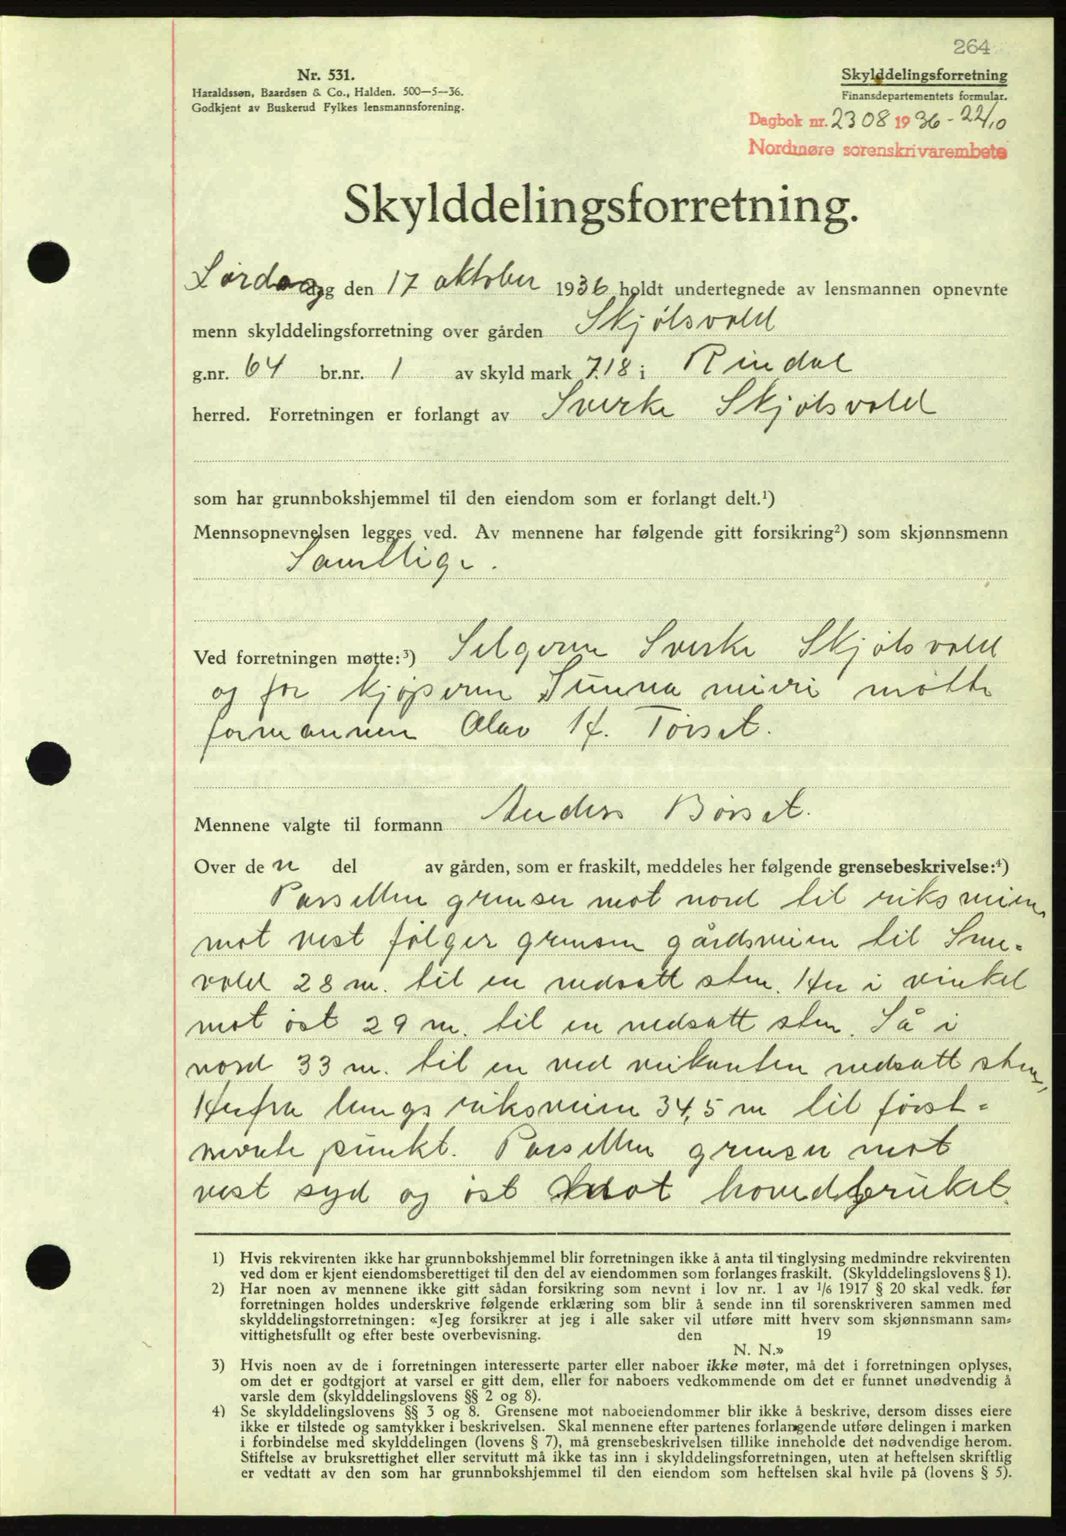 264
Nr. 531.
Haraldssøn, Baardsen & Co., Halden. 500—5—36.
Godkjent av Buskerud Fylkes lensmannsforening.
Skylddelingsforretning
Finansdepartementets formular.
Dagbok nr. 2308 1936 - 22/10
Nordmøre sorenskrivarembete
Skylddelingsforretning.
Lørdag den 17 oktober 1936 holdt undertegnede av lensmannen opnevnte
menn skylddelingsforretning over gården Skjølsvold
g.nr. 64 br.nr. 1 av skyld mark 7.18 i Rindal
herred. Forretningen er forlangt av Sverke Skjølsvold
som har grunnbokshjemmel til den eiendom som er forlangt delt.¹)
Mennsopnevnelsen legges ved. Av mennene har følgende gitt forsikring²) som skjønnsmenn
Samtlige.
Ved forretningen møtte:³) Selgeren Sverke Skjølsvold
og for kjøperen Sunna mieri møtte
formannen Olav H. Tørset.
Mennene valgte til formann Anders Børset.
Over den del av gården, som er fraskilt, meddeles her følgende grensebeskrivelse:⁴)
Parsellen grenser mot nord til riksveien,
mot vest følger grensen gårdsveien til Sme-
vold 28 m. til en nedsatt sten. Her i vinkel
mot øst 29 m. til en nedsatt sten. Så i
nord 33 m. til en ved veikanten nedsatt sten,
Herfra langs riksveien 34,5 m til først-
nevnte punkt. Parsellen grenser mot
vest syd og øst mot hovedbruket.
1) Hvis rekvirenten ikke har grunnbokshjemmel blir forretningen ikke å anta til tinglysing medmindre rekvirenten
ved dom er kjent eiendomsberettiget til den del av eiendommen som forlanges fraskilt. (Skylddelingslovens § 1).
2) Har noen av mennene ikke gitt sådan forsikring som nevnt i lov nr. 1 av 1/6 1917 § 20 skal vedk. før
forretningen holdes underskrive følgende erklæring som blir å sende inn til sorenskriveren sammen med
skylddelingsforretningen: «Jeg forsikrer at jeg i alle saker vil utføre mitt hverv som skjønnsmann sam-
vittighetsfullt og efter beste overbevisning. den 19
N. N.»
3) Hvis noen av de i forretningen interesserte parter eller naboer ikke møter, må det i forretningen oplyses,
om det er godtgjort at varsel er gitt dem, eller for naboers vedkommende om det er funnet unødvendig å
varsle dem (skylddelingslovens §§ 2 og 8).
4) Se skylddelingslovens §§ 3 og 8. Grensene mot naboeiendommer blir ikke å beskrive, dersom disses eiere
ikke er tilstede og samtykker i beskrivelsen. Skal mennene efter partenes forlangende utføre delingen i marken
i forbindelse med skylddelingen (lovens § 7), må grensebeskrivelsen tillike inneholde det nødvendige herom.
Stiftelse av bruksrettighet eller servitutt må ikke tas inn i skylddelingsforretningen, uten at heftelsen skriftlig
er vedtatt av den som har grunnbokshjemmel til den eiendom som heftelsen skal hvile på (lovens § 5).